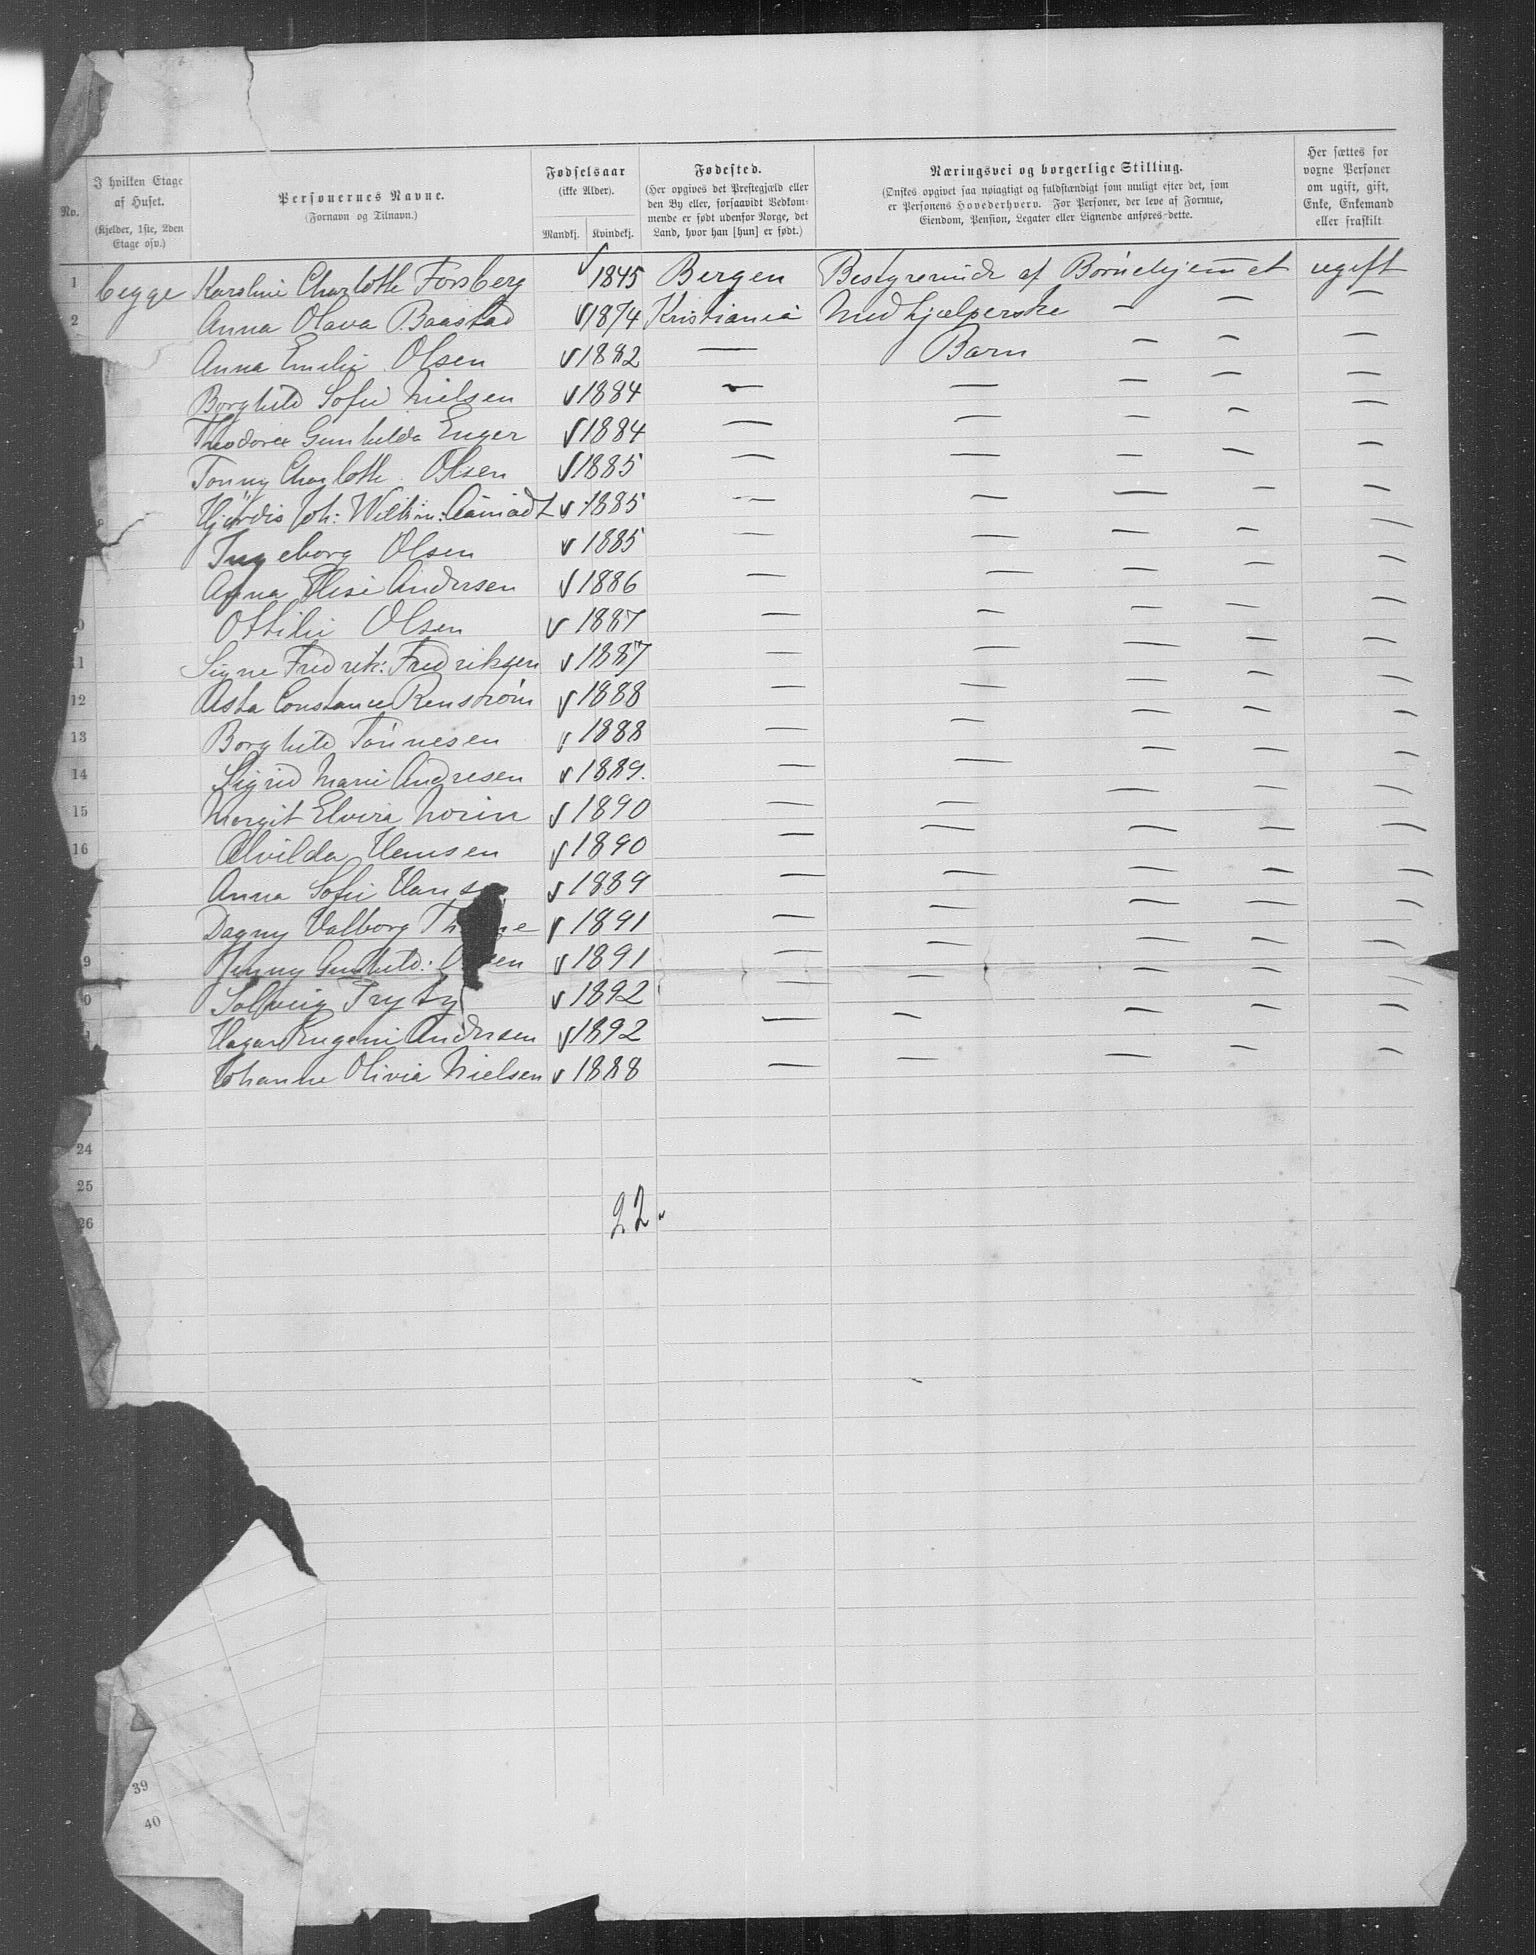 No.
I hvilken Etage af Huset. (Kjelder, 1ste, 2den Etage osv.)
Personernes Navne. (Fornavn og Tilnavn.)
Fødselsaar (ikke Alder). Mandkj. Kvindekj.
Fødested. (Her opgives det Prestegjæld eller den By eller, forsaavidt Vedkommende er født udenfor Norge, det Land, hvor han [hun] er født.)
Næringsvei og borgerlige Stilling. (Ønskes opgivet saa nøiagtigt og fuldstændigt som muligt efter det, som er Personens Hovederhverv. For Personer, der leve af Formue, Eiendom, Pension, Legater eller Lignende anføres dette.
Her sættes for voxne Personer om ugift, gift, Enke, Enkemand eller fraskilt
1 begge Karoline Charlotte Forsberg √ 1845 Bergen Bestyrerinde af Børnehjemmet ugift
2 Anna Olava Baastad √ 1874 Kristiania Medhjælperske — — —
Anna Emilie Olsen √ 1882 — Barn — — —
Borghild Sofie Nielsen √ 1884 — — — — —
Theodora Gunhilda Enger √ 1884 — — — — —
Fonny Charlotte Olsen √ 1885 — — — — —
8 Hjørdis Joh: Wilh: √ 1885 — — — — —
Ingeborg Olsen √ 1885 — — — — —
Anna Elise Andersen √ 1886 — — — — —
0 Ottilie Olsen √ 1887 — — — — —
11 Signe Fredrik: Fredriksen √ 1887 — — — — —
12 Asta Constance Renstrøm √ 1888 — — — — —
13 Borghild Tønnesen √ 1888 — — — — —
14 Sigrid Marie Andresen √ 1889. — — — — —
15 Margit Elvira Norin √ 1890 — — — — —
16 Alvilda Hansen √ 1890 — — — — —
Anna Sofie Hans √ 1889 — — — — —
Dagny Valborg Th e √ 1891 — — — — —
9 Jenny Gunhild: O en √ 1891 — — — — —
0 Solveig Tryty √ 1892 — — — — —
Hagar Eugenie Andersen √ 1892 — — — — —
Johanne Olivia Nielsen √ 1888 — — — — —
24
25
26 22
39
40